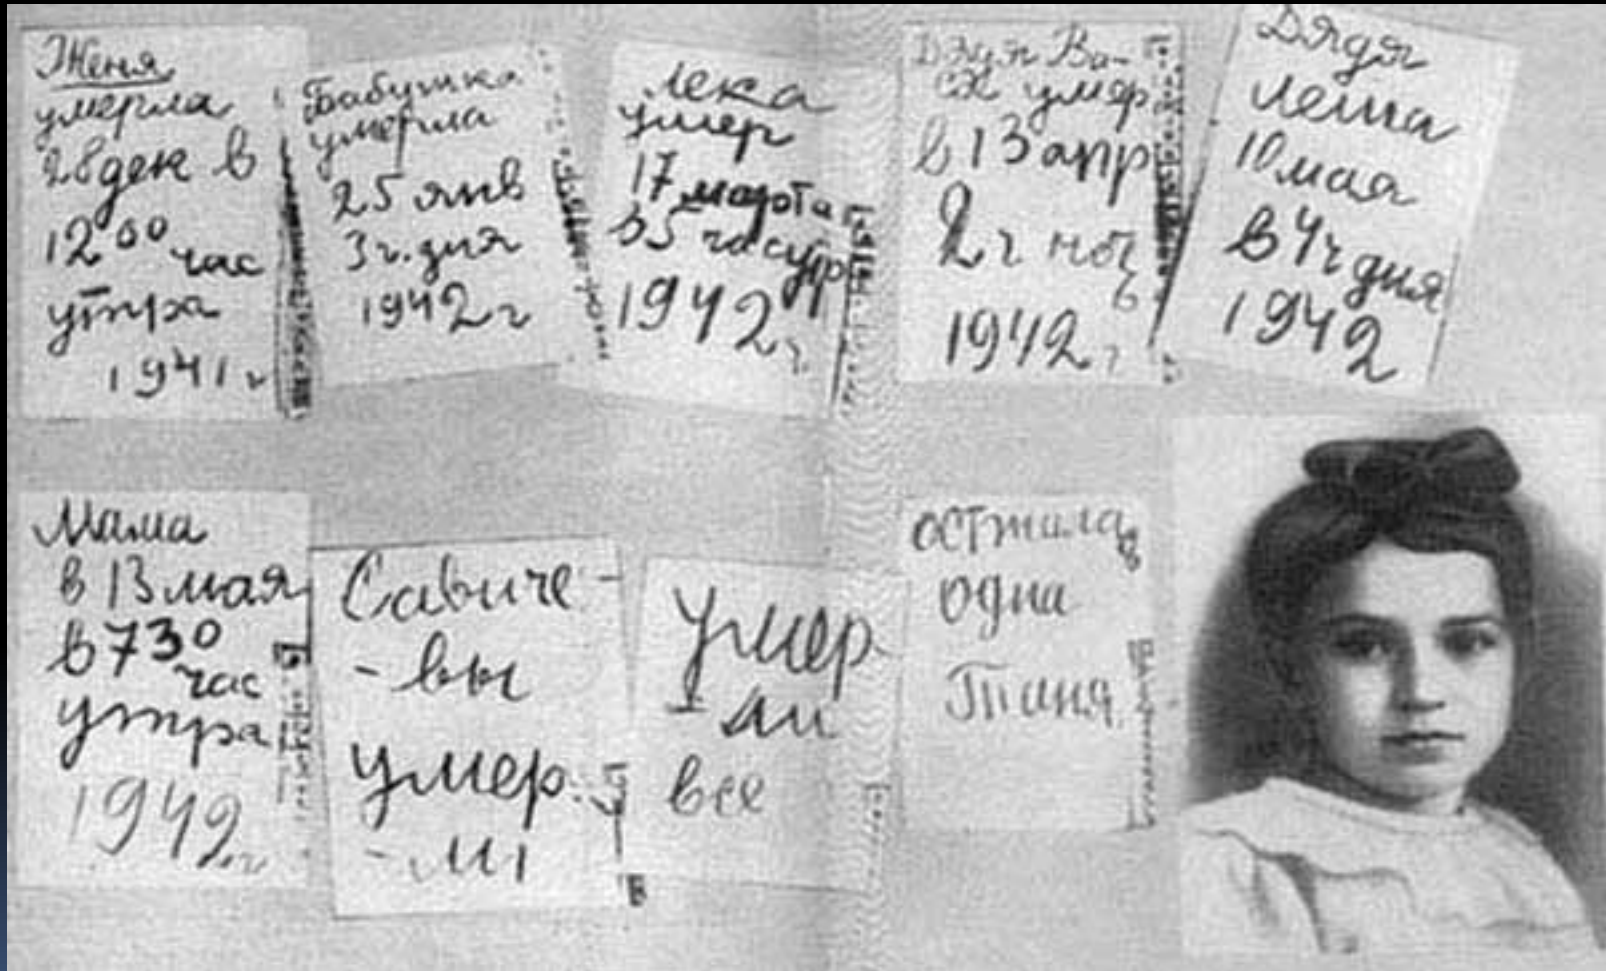 Женя
умерла
28 дек в
12 00 час
утра
1941 г
Бабушка
умерла
25 янв
3 ч. дня
1942 г
Лека
умер
17 марта
в 5 час утр
1942 г.
Дядя Ва-
ся умер
в 13 апр
2 ч ночь
1942 г
Дядя
Леша
10 мая
в 4 ч дня
1942
Мама
в 13 мая
в 7 30
час
утра
1942 г
Савиче-
- вы
умер.
- ли
Умер
- ли
все
Осталась
одна
Таня.